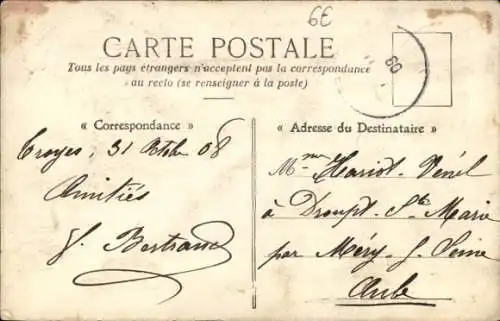 6€
CARTE POSTALE
Tous les pays étrangers n'acceptent pas la correspondance
au recto (se renseigner à la poste)
« Correspondance »
Troyes, 31 Octobre 08
Amitiés
G. Bertrand
« Adresse du Destinataire »
Mme Hariot-Vénel
à Droupt-Ste Marie
par Méry-s. Seine
Aube